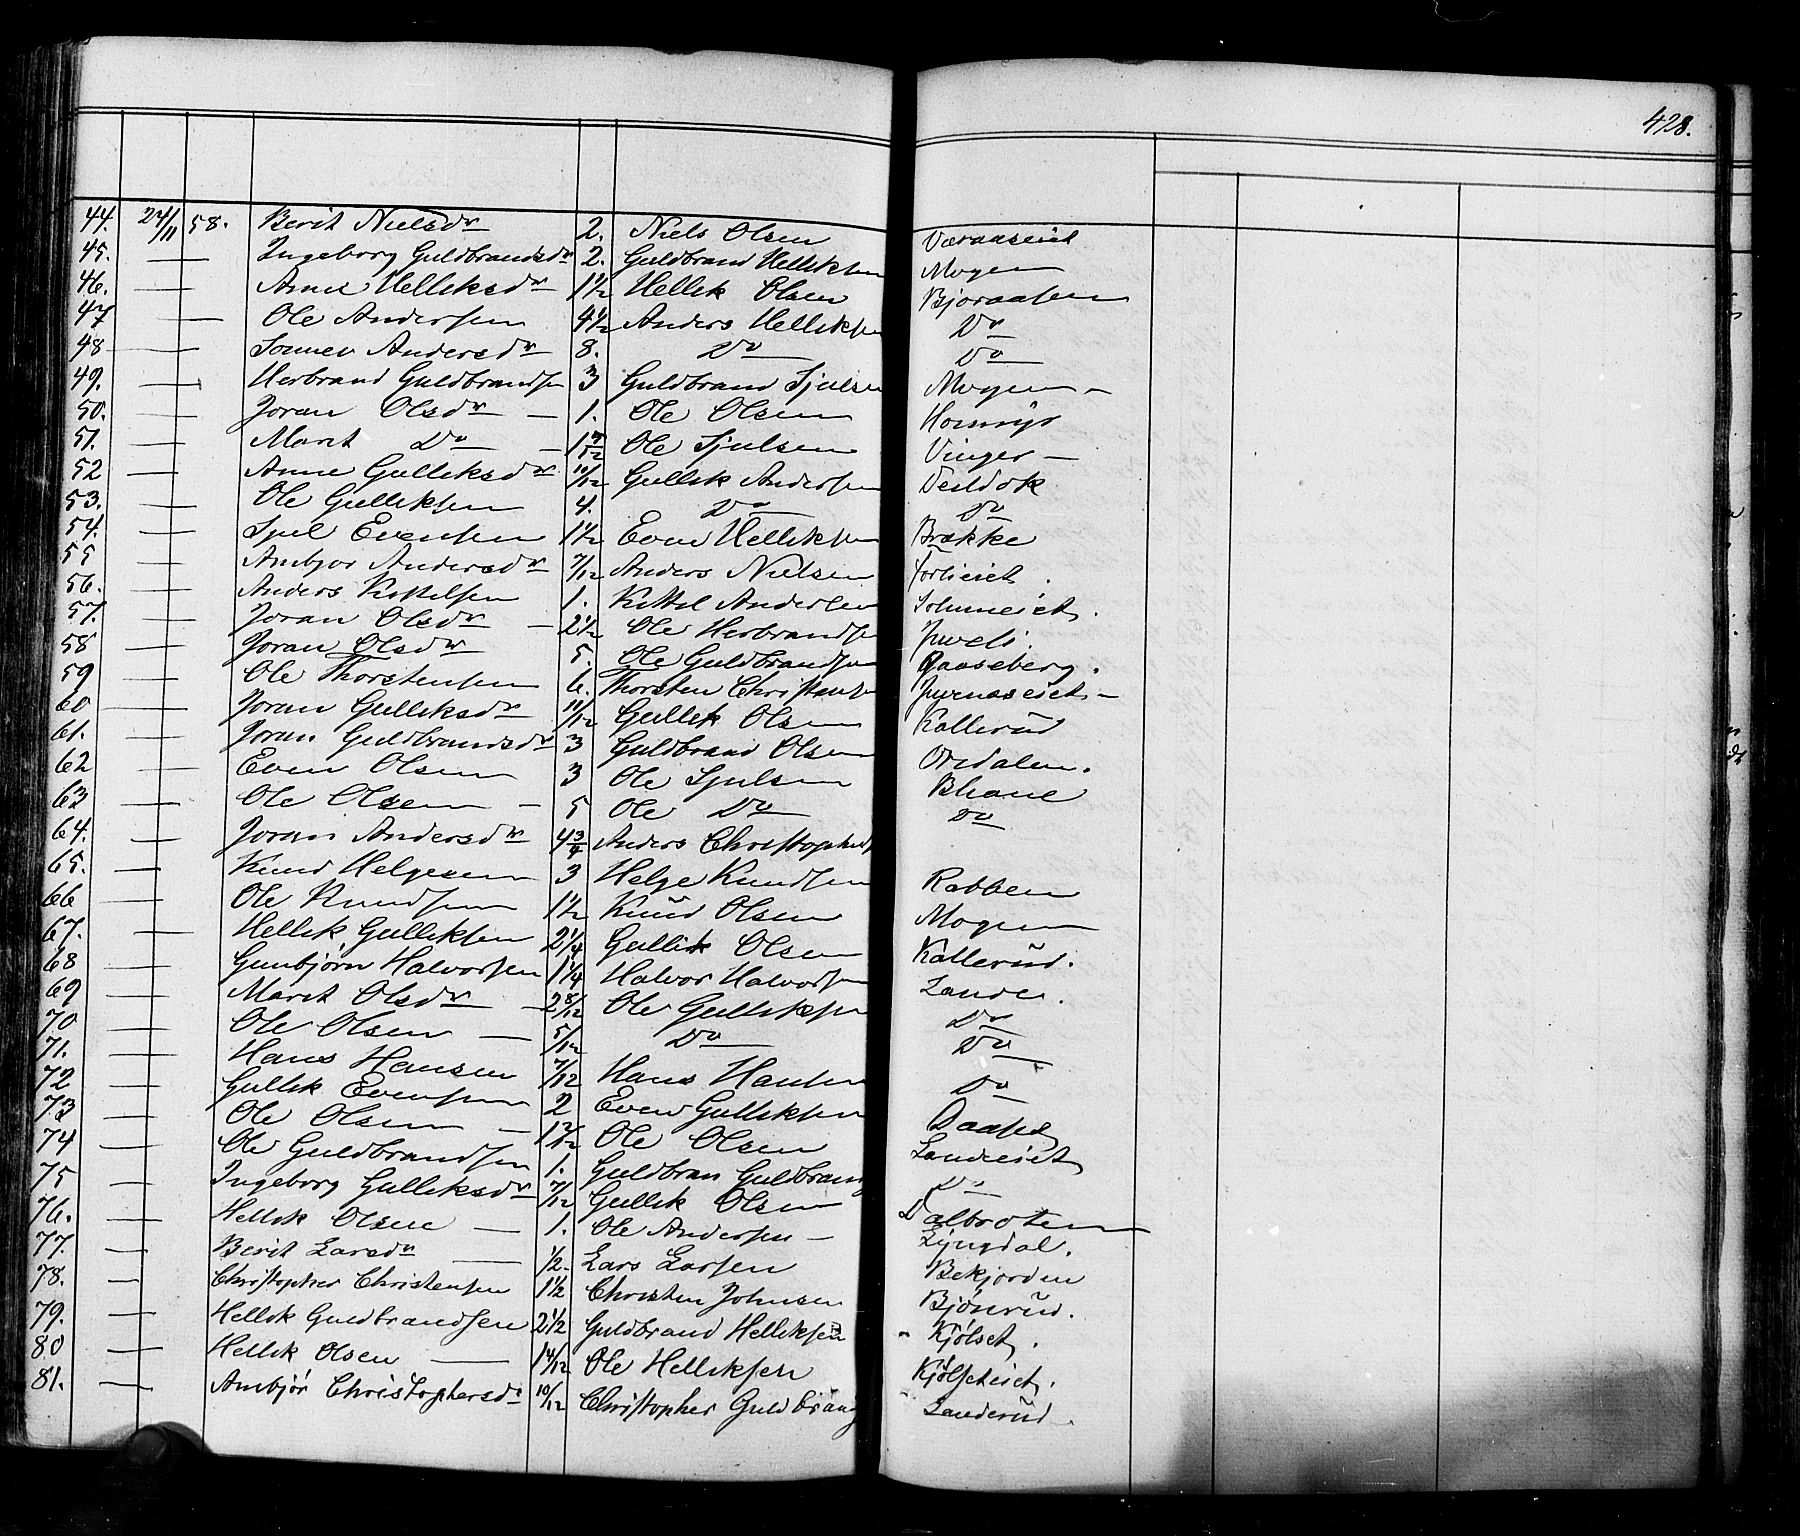 428.
44. 24/11 58. Berit Nielsdr 2. Niels Olsen Væraaseiet
45. — Ingeborg Guldbrandsdr 2. Guldbrand Helliksen Mogen
46. — Anne Helliksdr 1 1/2 Hellik Olsen Bjoraasen
47 — Ole Andersen 4 1/2 Anders Helliksen Do
48 — Andersdr 8. Do Do
49. — Herbrand Guldbrandsen 3 Guldbrand Sjulsen Mogen —
50. — Joran Olsdr — 1. Ole Olsen
51. — Maret Do — Ole Sjulsen Vinger —
52 — Anne Gulliksdr 10/12 Gullik Andersen
53. — Ole Gulliksen 4. Do Do
54. — Sjul Evensen 1 1/2 Even Helliksen Brække
55 — Ambjor Andersdr 7/12 Anders Nielsen
56. — Anders Kittelsen 1. Kittel Andersen
57. — Joran Olsdr — 2 1/2 Ole Herbrandsen Juveli
58 — Joran Olsdr 5. Ole Guldbrandsen Gaaseberg.
59 — Ole Thorstensen 6. Thorsten Christensen —
60 — Joran Gulliksdr 11/12 Gullik Olsen Kallerud
61. — Joran Guldbrandsdr 3 Guldbrand Olsen
62 — Even Olsen 3 Ole Sjulsen
63 — Ole Olsen — 5 Ole Do Do
64. — Joran Andersdr 4 3/4 Anders
65. — Knud Helgesen 3 Helge Knudsen Rabben
66 — Ole Knudsen 1 1/2 Knud Olsen Mogen
67. — Hellik Gulliksen 2 1/4 Gullik Olsen Kallerud.
68 — Gunbjørn Halvorsen 1 1/4 Halvor Halvorsen Lande.
69 — Maret Olsdr — 2 8/12 Ole Gulliksen Do
70 — Ole Olsen — 5/12 Do Do
71. — Hans Hansen 7/12 Hans Hansen Do
72 — Gullik Evensen 2 Even Gulliksen
73 — Ole Olsen — Ole Olsen Landeeiet
74 — Ole Guldbrandsen 1. Guldbran Guldbrands Do
75 — Ingeborg Gulliksdr 7/12 Gullik Olsen Dalbroten
76. — Hellik Olsen — 1. Ole Andersen — Lyngdal.
77. — Berit Larsdr — 1/2. Lars Larsen Bekjorden
78. — Christopher Christensen 1 1/2 Christen Johnsen Bjønrud.
79. — Hellik Guldbrandsen 2 1/2 Guldbrand Helliksen Kjølset.
80 — Hellik Olsen — 1 4/12 Ole Helliksen Kjølseteiet.
81. — Ambjør Christophersdr 10/12 Christopher Guldbrands Landerud.